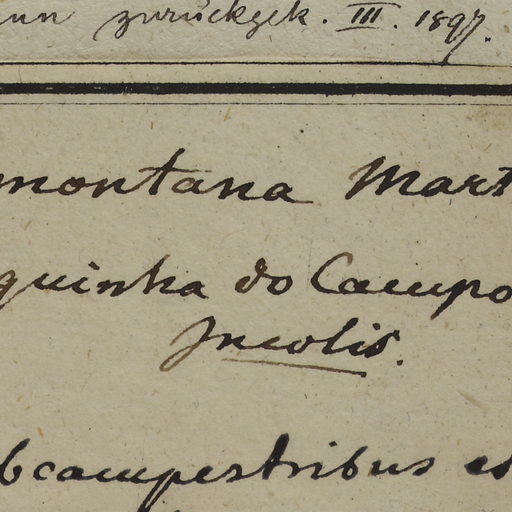 zurückgek. III. 1897.
montana Mart
quinha do Campo
Incolis.
bcampestribus es